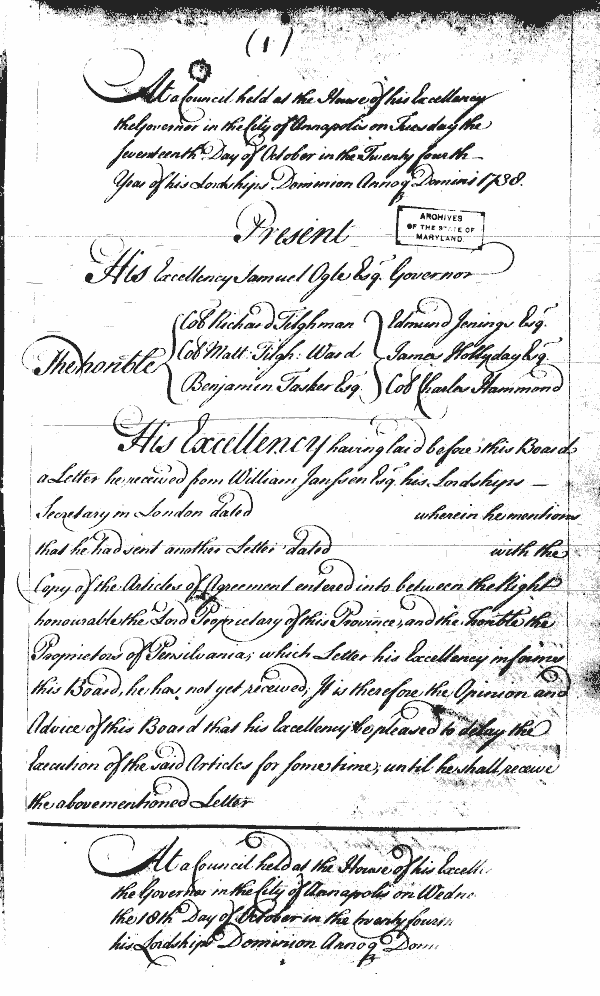 (1)
At a Council held at the House of his Excellency
the Governor in the City of Annapolis on Tuesday the
Seventeenth Day of October in the Twenty fourth
Year of his Lordships Dominion Annoq Domini 1738.
Present
ARCHIVES
OF THE STATE OF
MARYLAND
His Excellency Samuel Ogle Esq. Governor
Col Richard Tilghman Edmund Jenings Esq.
The honble Col Matt: Tilgh: Ward James Hollyday Esq.
Benjamin Tasker Esq. Col Charles Hammond
His Excellency having laid before this Board
a Letter he received from William Janssen Esq. his Lordships
Secretary in London dated wherein he mentions
that he had sent another Letter dated with the
Copy of the Articles of Agreement entered into between the Right
honourable the Lord Proprietary of this Province, and the honble the
Proprietors of Pensilvania; which Letter his Excellency informs
this Board, he has not yet received, It is therefore the Opinion and
Advice of this Board that his Excellency be pleased to delay the
Execution of the said Articles for some time, until he shall receive
the abovementioned Letter
At a Council held at the House of his Excelle
the Governor in the City of Annapolis on Wedne
the 18th Day of October in the twenty fourth
his Lordships Dominion Annoq Domi